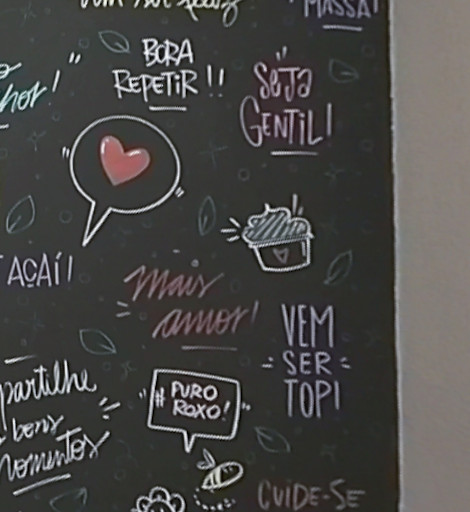 MASSA!
BORA
REPETIR!!
SEJA
GENTIL!
AÇAÍ!
mais
amor!
VEM
SER
TOP!
partilhe
bons
momentos
#PURO
ROXO!
CUIDE-SE